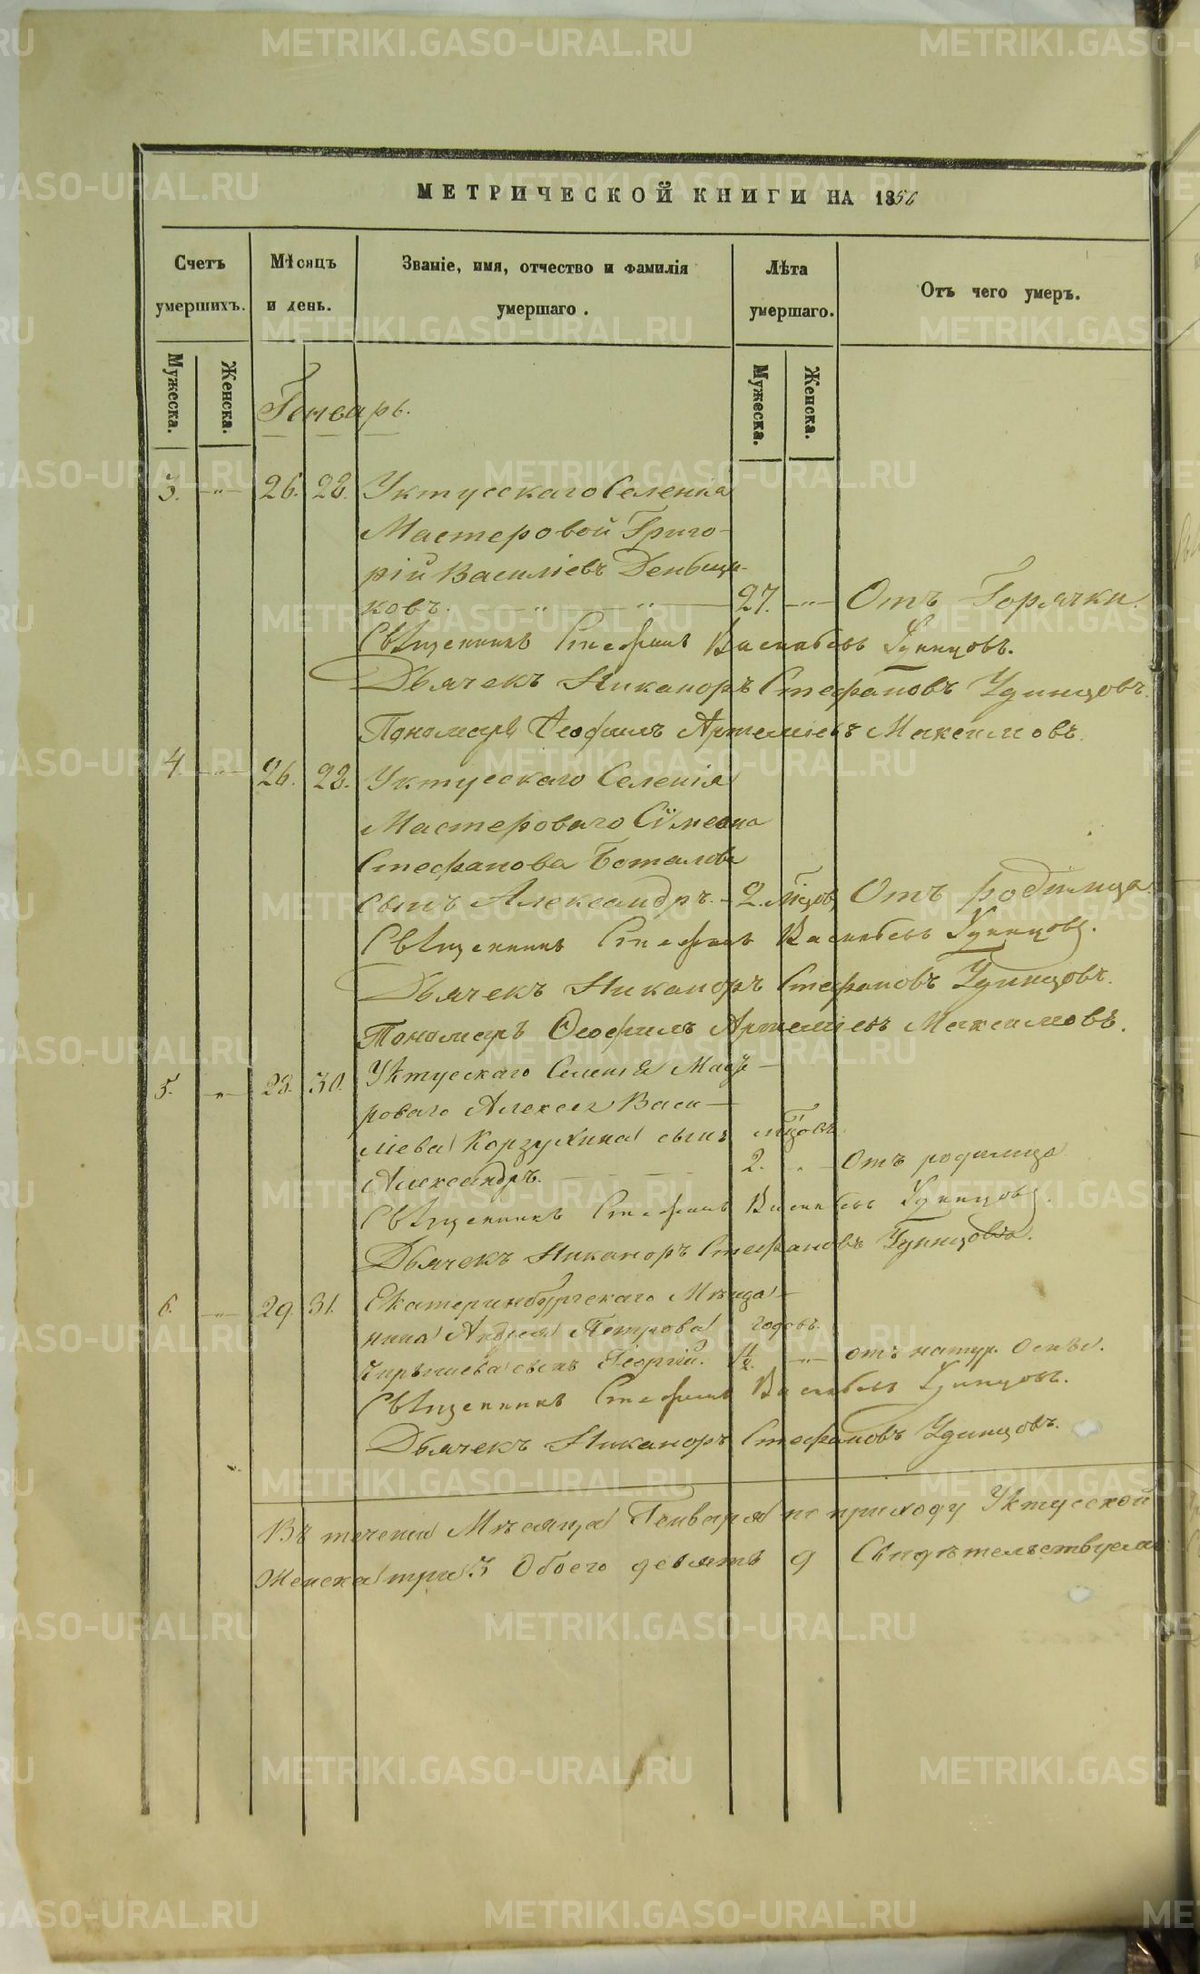 МЕТРИЧЕСКОЙ КНИГИ НА 1856
Счетъ умершихъ.
Мѣсяцъ и день.
Званіе, имя, отчество и фамилія умершаго.
Лѣта умершаго.
Отъ чего умеръ.
Мужеска.
Женска.
Мужеска.
Женска.
Генварь.
3. " 26. 28. Уктусскаго Селенія
Мастеровой Григо-
рій Василіевъ Деньщи-
ковъ. " " 27. " Отъ Горячки.
Священникъ Стефанъ Васильевъ Удинцовъ.
Дьячекъ Никаноръ Стефановъ Удинцовъ.
Пономарь Ѳеофилъ Артеміевъ Максимовъ.
4 " 26. 28. Уктусскаго Селенія
Мастероваго Сѵмеона
Стефанова Боталова
сынъ Александръ. 2. мѣцов. Отъ родимца
Священникъ Стефанъ Васильевъ Удинцовъ.
Дьячекъ Никаноръ Стефановъ Удинцовъ.
Пономарь Ѳеофилъ Артеміевъ Максимовъ.
5. " 28. 30. Уктусскаго Селенія Масте-
роваго Алексея Васи-
ліева Корзухина сынъ мѣцовъ
Александръ. 2. " Отъ родимца
Священникъ Стефанъ Васильевъ Удинцовъ.
Дьячекъ Никаноръ Стефановъ Удинцовъ.
6. " 29 31. Екатеринбургскаго Мѣща-
нина Андрея Петрова годовъ.
сынъ Георгій. " отъ натур. Оспы.
Священникъ Стефанъ Васильевъ Удинцовъ.
Дьячекъ Никаноръ Стефановъ Удинцовъ.
Въ теченіи Мѣсяца Генваря по приходу Уктусской
Женска три 3 Обоего девять 9 Свидѣтельствуемъ
METRIKI.GASO-URAL.RU